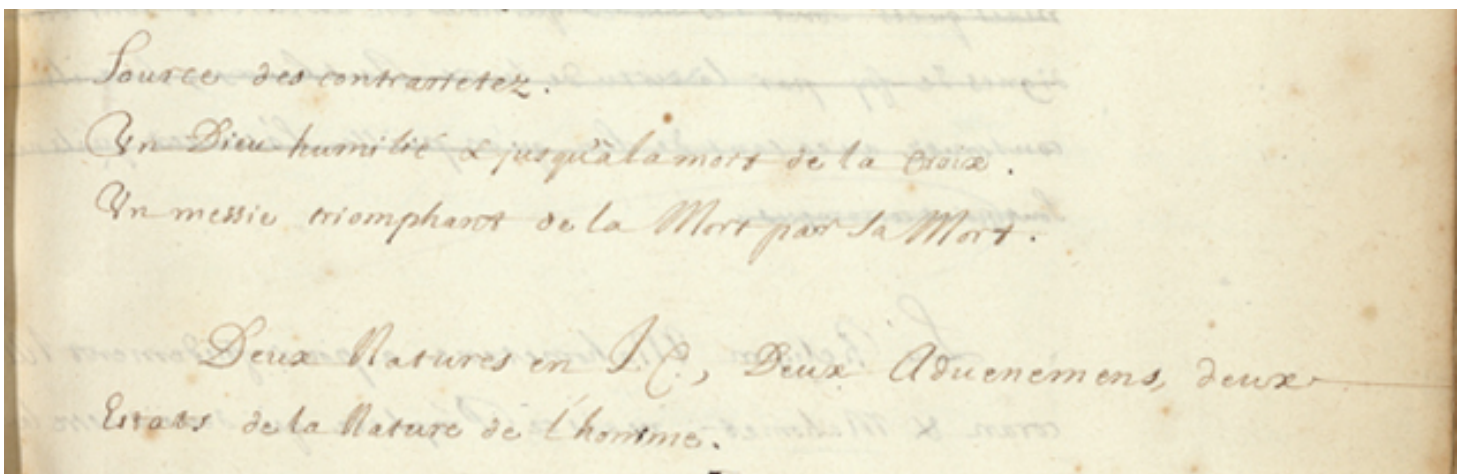 Source des contrarietez.
Un Dieu humilié & jusqu'a la mort de la croix.
Un messie triomphant de la Mort par sa Mort.
Deux Natures en J.C., Deux Aduenemens, deux
Estats de la Nature de l'homme.